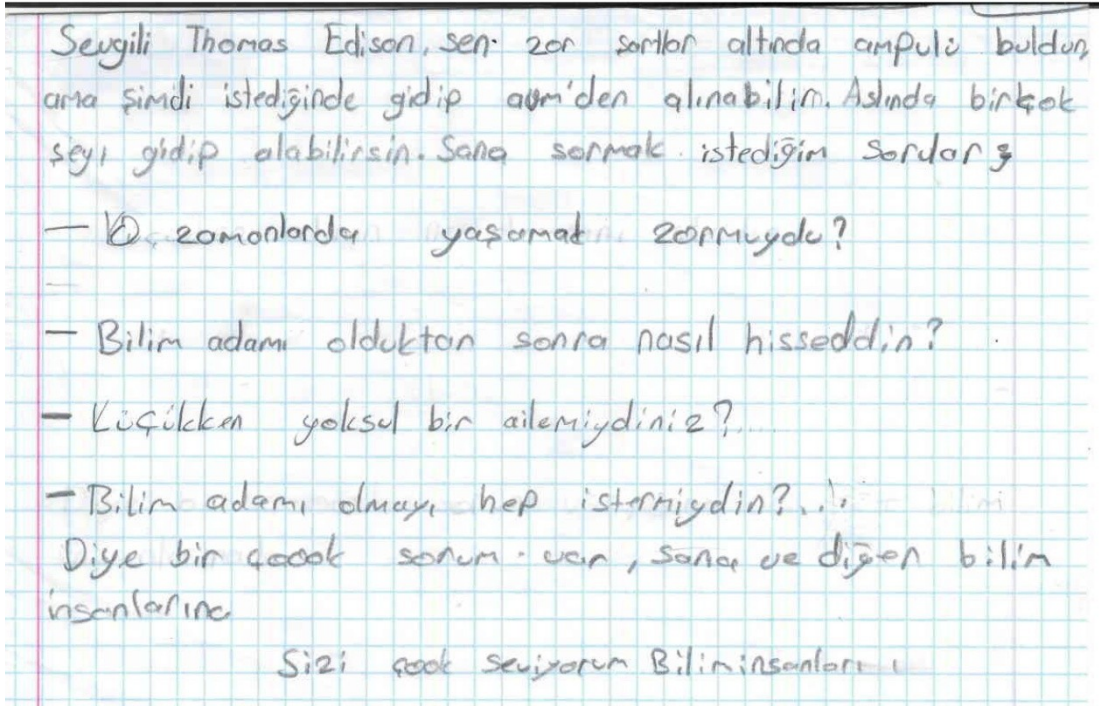 Sevgili Thomas Edison, sen zor şartlar altında ampulü buldun,
ama şimdi istediğinde gidip avm'den alınabilir. Aslında birkçok
şeyi gidip alabilirsin. Sana sormak istediğim sorular ;
— O zamanlarda yaşamak zormuydu?
— Bilim adamı olduktan sonra nasıl hisseddin?
— Küçükken yoksul bir ailemiydiniz?...
— Bilim adamı olmayı hep istermiydin?...
Diye bir çook sorum var, sana ve diğer bilim
insanlarına
Sizi çook seviyorum Biliminsanları